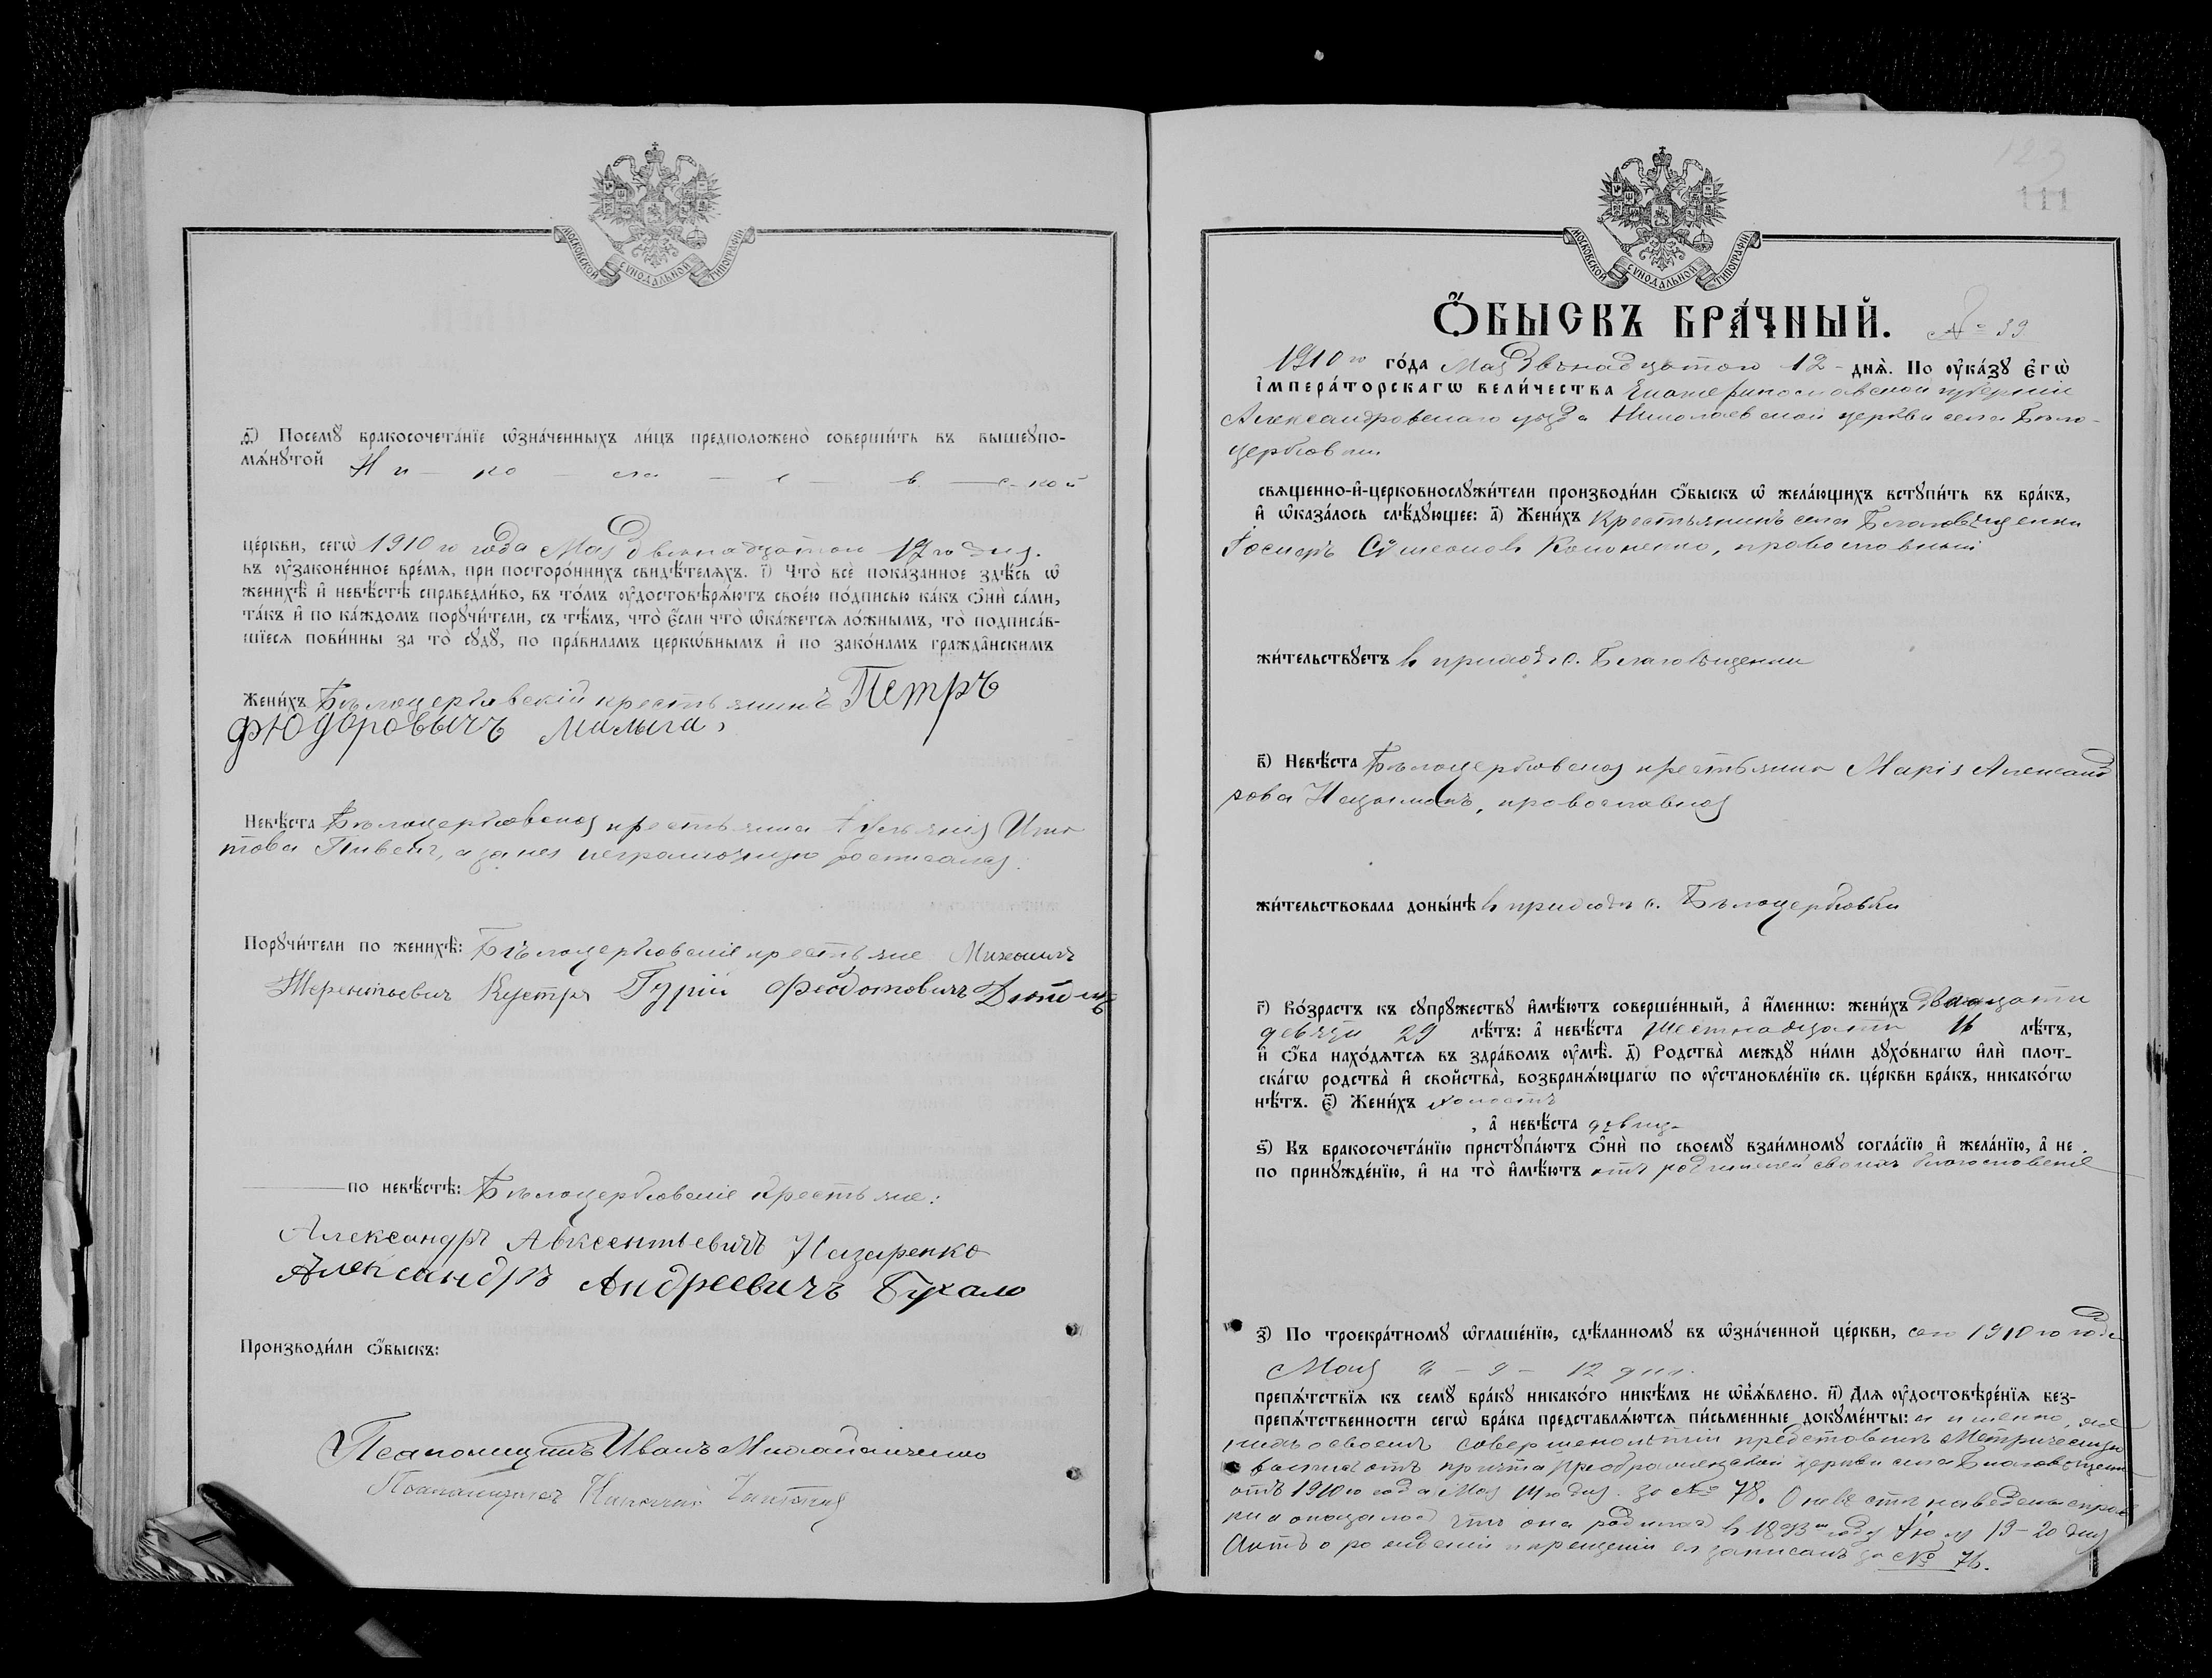 МОСКОВСКОЙ СѴНОДАЛЬНОЙ ТИПОГРАФІИ
д҃) Посемꙋ̀ бракосочета́нїе ѡ҆зна́ченныхъ ли́цъ предположено̀ соверши́ть въ вышеꙋпо-
мѧ́нꙋтой Ни - ко - ла - е - в - с-кой
це́ркви, сегѡ̀ 1910 го года Мая двенадцатаго 12 го дня.
въ ᲂу҆зако́ненное вре́мѧ, при посторо́ннихъ свидѣ́телѧхъ. і҃) Что̀ всѐ пока́занное здѣ́сь ѡ҆
женихѣ̀ и҆ невѣ́стѣ справедли́во, въ то́мъ ᲂу҆достовѣрѧ́ютъ свое́ю по́дписью ка́къ ѻ҆нѝ са́ми,
та́къ и҆ по ка́ждомъ порꙋчи́тели, съ тѣ́мъ, что̀ є҆́сли что̀ ѡ҆ка́жетсѧ ло́жнымъ, то̀ подписа́в-
шїесѧ пови́нны за то̀ сꙋдꙋ̀, по пра́виламъ церкѡ́внымъ и҆ по зако́намъ гражда̂нскимъ
Жени́хъ Бѣлоцерковскій крестьянинъ Петръ
Фюдоровычъ Малыга,
Невѣ́ста Бѣлоцерковская крестьянка
това Пивень, а за нея неграмотную росписался
Порꙋчи́тели по женихѣ̀: Бѣлоцерковскіе крестьяне Михаилъ
Терентьевич Кустря Гурій Феодотовичъ
по невѣ́стѣ: Бѣлоцерковскіе крестьяне:
Александръ Авксентьевичъ Назаренко
Александръ Андреевичъ Бухало
Производи́ли ѻ҆́быскъ:
Псаломщикъ Иванъ
Псаломщикъ Николай
123
111
МОСКОВСКОЙ СѴНОДАЛЬНОЙ ТИПОГРАФІИ
Ѻ҆́БЫСКЪ БРА́ЧНЫЙ. № 39
1910 го го́да Мая Двѣнадцатаго 12 - днѧ̀. По ᲂу҆ка́зꙋ Є҆гѡ̀
І҆мпера́торскагѡ вели́чества Екатеринославской губерніи
Александровскаго уѣзда Николаевской церкви села Бѣло-
церковки
свѧщенно-и҆-церковнослꙋжи́тели производи́ли ѻ҆́быскъ ѡ҆ жела́ющихъ встꙋпи́ть въ бра́къ,
и҆ ѡ҆каза́лось слѣ́дꙋющее: а҃) Жени́хъ Крестьянинъ села Благовѣщенки
Сумеоновъ Кононенко, православный
жи́тельствꙋетъ въ приходѣ с. Благовѣщенки
в҃) Невѣ́ста Бѣлоцерковская крестьянка Марія Александ
рова православная
жи́тельствовала доны́нѣ въ приходѣ с. Бѣлоцерковки
г҃) Во́зрастъ къ сꙋпрꙋ́жествꙋ и҆мѣ́ютъ соверше́нный, а҆ и҆́меннѡ: жени́хъ двадцати
девяти 29 лѣ́тъ: а҆ невѣ́ста Шестнадцати 16 лѣ́тъ,
и҆ ѻ҆́ба нахо́дѧтсѧ въ здра́вомъ ᲂу҆мѣ̀. д҃) Родства̀ междꙋ̀ ни́ми дꙋхо́внагѡ и҆лѝ плот-
ска́гѡ родства̀ и҆ сво́йства, возбранѧ́ющагѡ по ᲂу҆становле́нїю св. це́ркви бра́къ, никако́гѡ
нѣ́тъ. є҃) Жени́хъ холостъ
, а҆ невѣ́ста девица
ѕ҃) Къ бракосочета́нїю пристꙋпа́ютъ ѻ҆нѝ по своемꙋ̀ взаи́мномꙋ согла́сїю и҆ жела́нїю, а҆ не
по принꙋжде́нїю, и҆ на то̀ и҆мѣ́ютъ отъ родителей своихъ благословеніе
з҃) По троекра́тномꙋ ѡ҆глаше́нїю, сдѣ́ланномꙋ въ ѡ҆зна́ченной це́ркви, сего 1910 го года
Мая - 9 - 12 дня.
препѧ́тствїѧ къ семꙋ̀ бра́кꙋ никако́го никѣ́мъ не ѡ҆б̾ѧ́влено. и҃) Длѧ ᲂу҆достовѣре́нїѧ без-
препѧ́тственности сегѡ̀ бра́ка представлѧ́ютсѧ пи́сьменные докꙋме́нты: а именно, же
нихъ о своемъ совершеннолѣтіи представилъ Метрическую
выпись отъ причта Преображенской церкви села Благовѣщен
отъ 1910 го года Мая дня за № 78. О невѣстѣ наведены справ
ки и оказалось что она родилась въ 1893 м году 19-20 дня
Актъ о рожденіи и крещеніи ея записанъ за № 76.